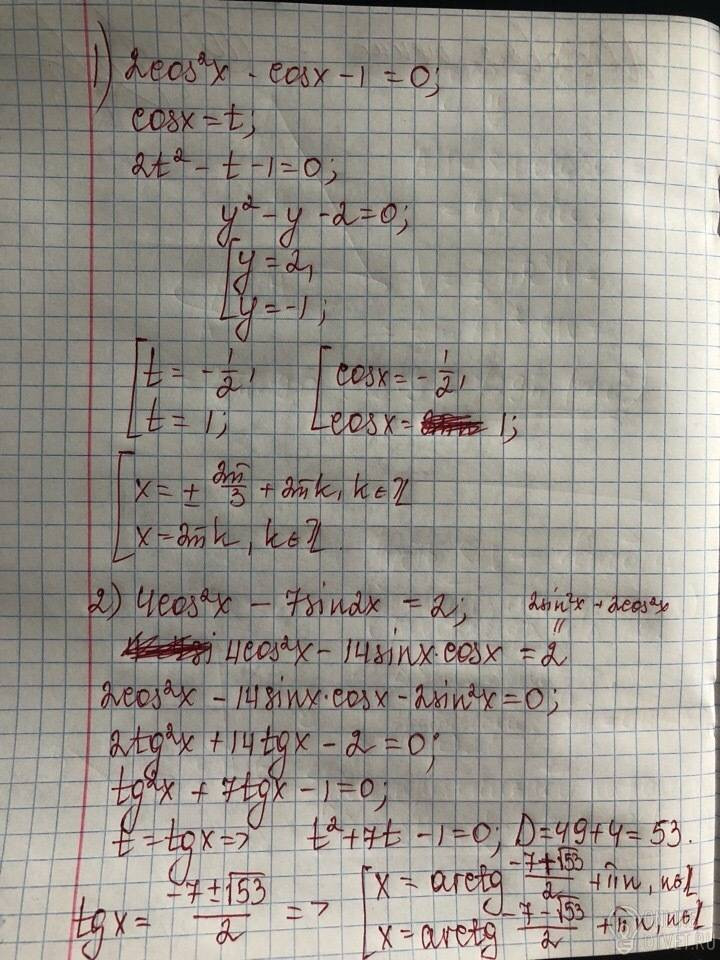 1) 2cos²x - cosx - 1 = 0;
cosx = t;
2t² - t - 1 = 0;
y² - y - 2 = 0;
[y = 2,
y = -1;
[t = -1/2, [cosx = -1/2,
t = 1; cosx = 1;
[x = ± 2π/3 + 2πk, k∈Z
x = 2πk, k∈Z.
2) 4cos²x - 7sin2x = 2; 2sin²x + 2cos²x
4cos²x - 14sinx·cosx = 2
2cos²x - 14sinx·cosx - 2sin²x = 0;
2tg²x + 14tgx - 2 = 0;
tg²x + 7tgx - 1 = 0;
t = tgx => t² + 7t - 1 = 0; D = 49 + 4 = 53.
tgx = (-7 ± √53)/2 => [x = arctg (-7 + √53)/2 + πn, n∈Z
x = arctg (-7 - √53)/2 + πn, n∈Z